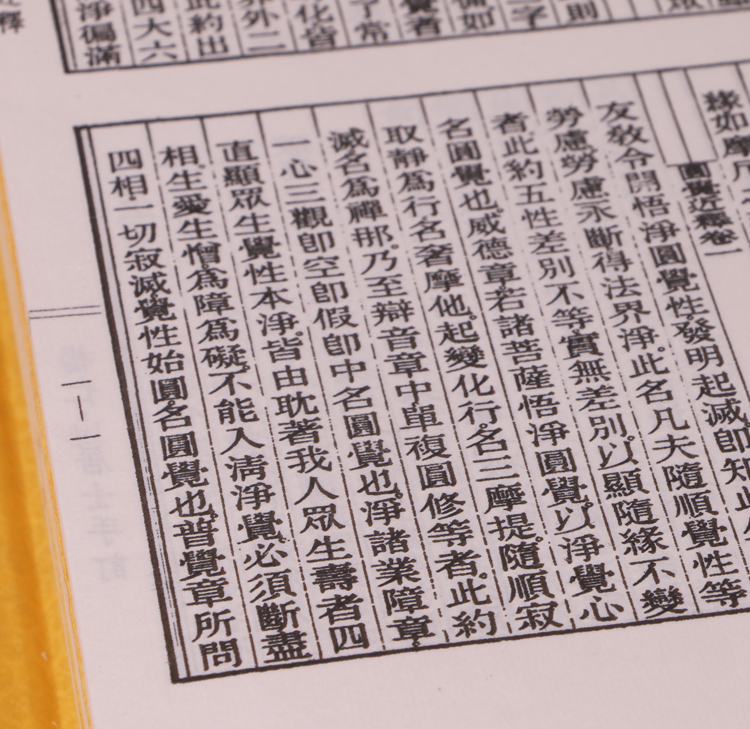 則
二字
覺者
了常
化皆
界外二
此約出
四大六
淨徧滿
釋
緣如摩
圓覺近釋卷一
友教令開悟淨圓覺性。發明起滅。卽知此
勞慮勞慮永斷得法界淨。此名凡夫隨順覺性等
者。此約五性差別不等。實無差別。以顯隨緣不變
名圓覺也。威德章。若諸菩薩悟淨圓覺。以淨覺心
取靜爲行。名奢摩他。起變化行。名三摩提。隨順寂
滅。名爲禪那。乃至辯音章中單複圓修等者。此約
一心三觀。卽空卽假卽中。名圓覺也。淨諸業障章。
直顯眾生覺性本淨。皆由耽著我人眾生壽者四
相。生愛生憎。爲障爲礙。不能入清淨覺。必須斷盡
四相。一切寂滅。覺性始圓。名圓覺也。普覺章所問
一